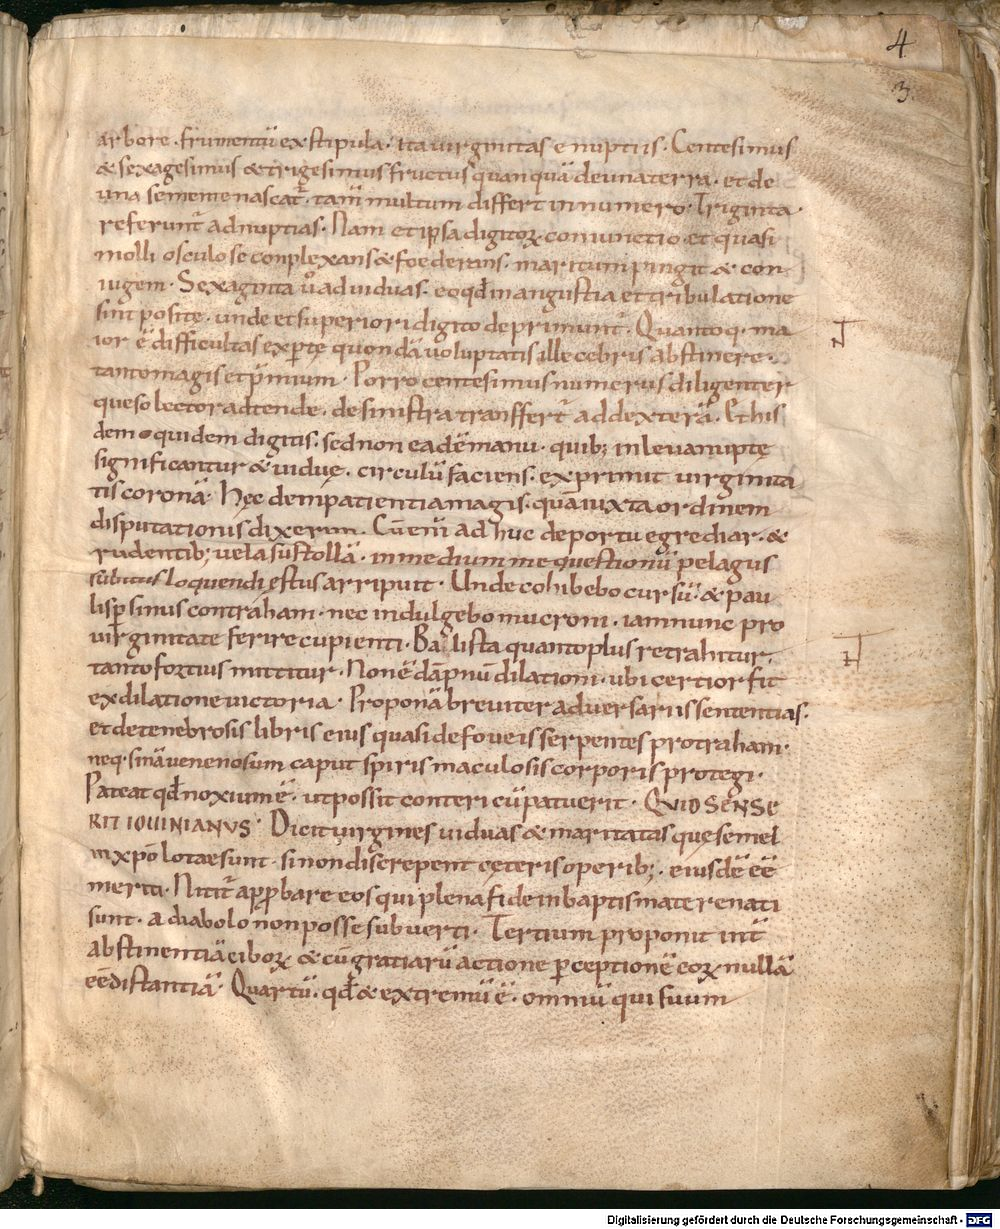 4
3
arbore · frumentū ex stipula · ita virginitas e nuptiis · Centesimus
& sexagesimus & trigesimus fructus quanquā de una terra · et de
una semente nascat̄ · tam̄ multum differt in numero · Triginta
referunt̄ ad nuptias · Nam et ipsa digitoꝝ coniunctio et quasi
molli osculo se conplexans & foederans · maritum pingit & con
iugem · Sexaginta ū ad viduas · eo qd̄ in angustia et tribulatione
sint positę · unde et superiori digito deprimunt̄ · Quantoq· ma
ior ē difficultas expertę quondā voluptatis illecebris abstinere ·
tanto magis et p̄mium · Porro centesimus numerus diligenter
queso lector adtende · de sinistra transfert̄ ad dexterā · Et his
dem quidem digitis · sed non eadē manu · quib; in leva nuptę
significantur & viduę · circulū faciens · exprimit virginita
tis coronā · Hęc de inpatientia magis · quā iuxta ordinem
disputationis dixerim · Cū eni͂ adhuc de portu egrediar · &
rudentib; vela sustollā · in medium me questionū pelagus
subitus loquendi ęstus arripuit · Unde cohibebo cursū · & pau
lisp̱ sinus contraham · nec indulgebo mucroni · iamnunc pro
virginitate ferire cupienti · Balista quanto plus retrahitur ·
tanto fortius mittitur · Non ē dāpnū dilationi · ubi certior fit
ex dilatione victoria · Proponā breviter adversarii sententias ·
et de tenebrosis libris eius quasi de foveis serpentes protraham ·
neq· sinā venenosum caput spiris maculosi corporis protegi ·
Pateat qd̄ noxium ē · ut possit conteri cū patuerit · QUID SENSE
RIT IOUINIANUS · Dicit virgines viduas & maritatas quę semel
in xp̄o lotae sunt · si non discrepent cęteris operib; · eiusdē eē
meriti · Nitit̄ app̱bare eos qui plena fide in baptismate renati
sunt · a diabolo non posse subverti · Tertium proponit int̄
abstinentiā ciboꝝ & cū gratiarū actione p̱ceptionē eoꝝ nullā
eē distantiā · Quartū · qd̄ & extremū ē · omniū qui suum